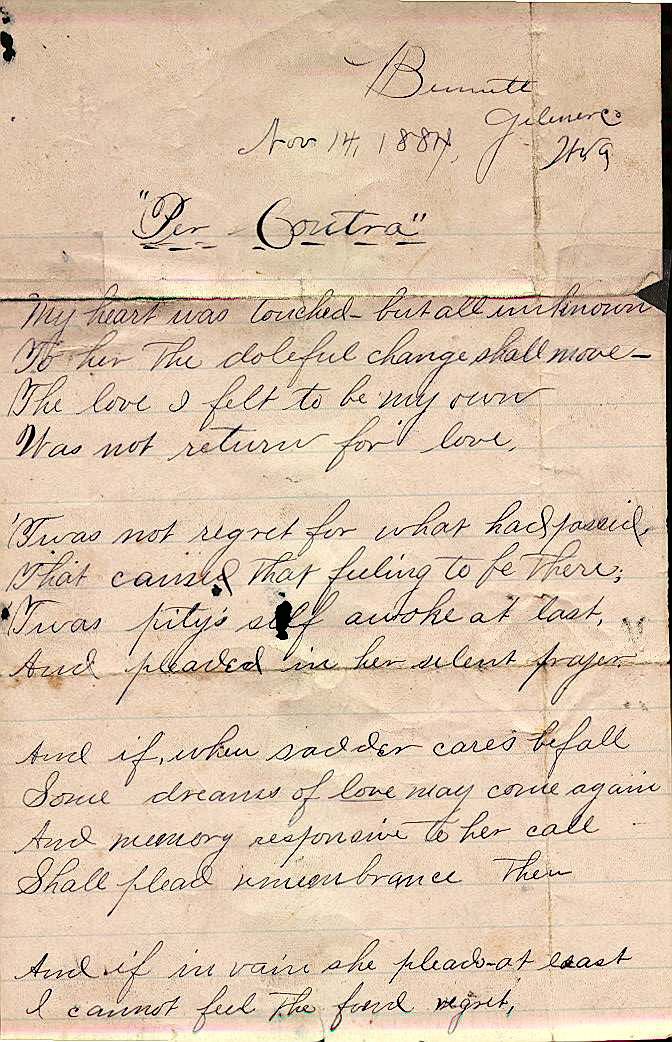 Bennett
Gilmer Co
Nov 14, 1884, WVa
"Per Contra"
My heart was touched - but all unknown
To her the doleful change shall move -
The love I felt to be my own
Was not return for love.
'Twas not regret for what had passed,
That caused that feeling to be there;
'Twas pity's self awoke at last,
And pleaded in her silent prayer.
And if, when sadder cares befall
Some dreams of love may come again
And memory responsive to her call
Shall plead remembrance then
And if in vain she plead - at least
I cannot feel the fond regret,